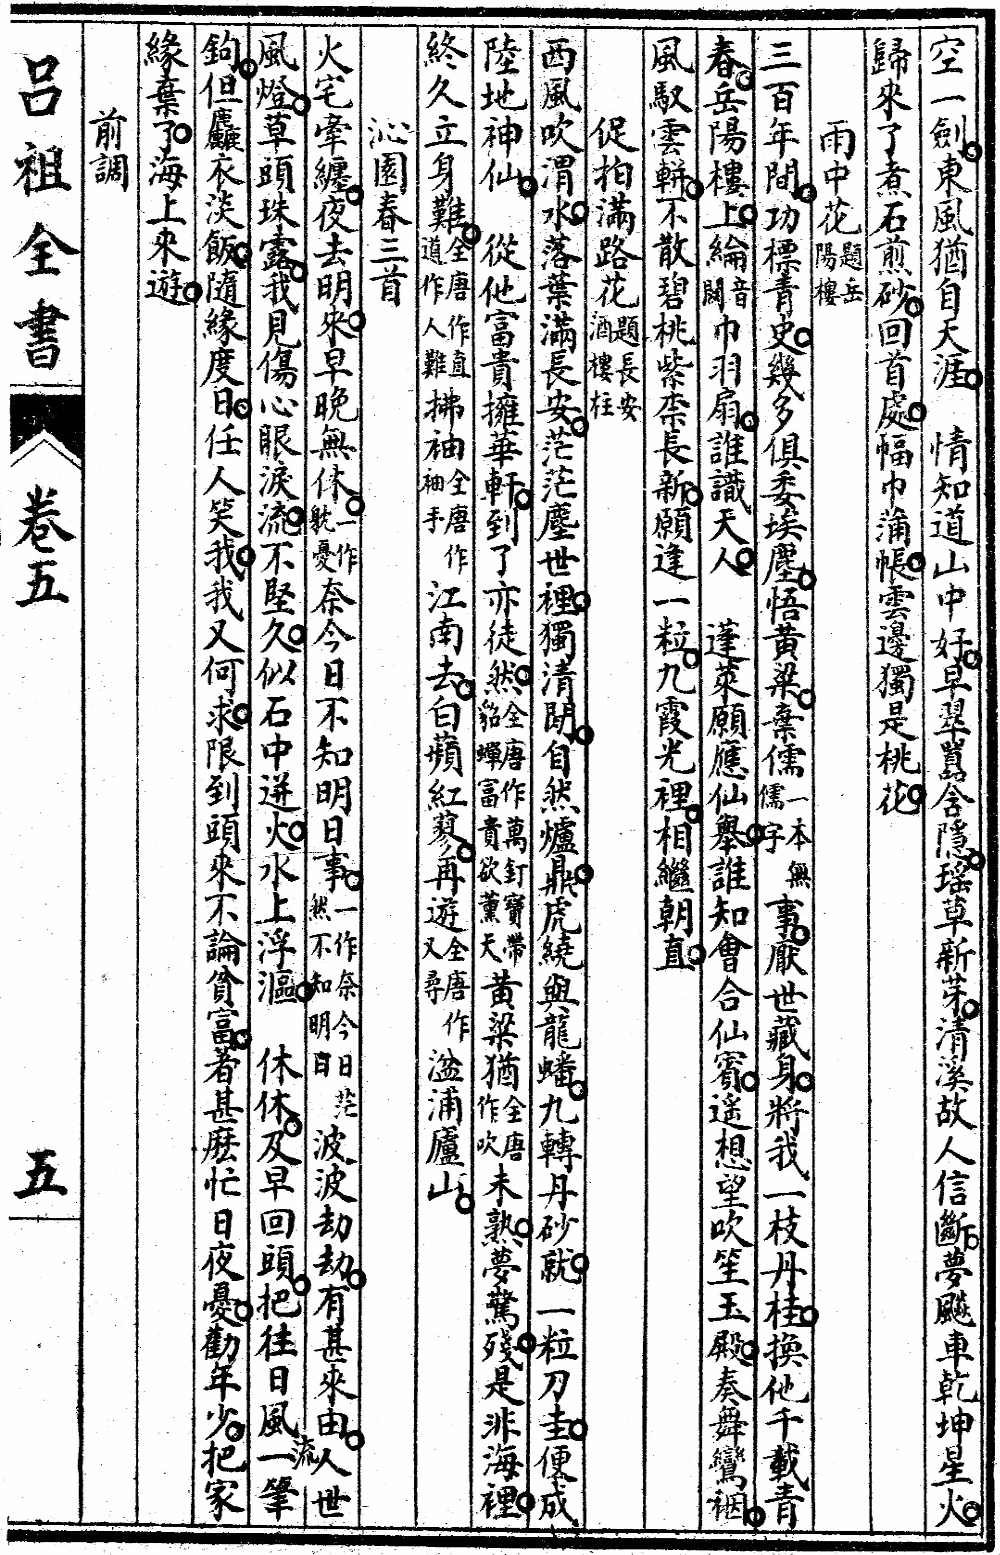 空一劍東風猶自天涯　情知道山中好早翠嚣含隱瑶草新芽清溪故人信斷夢颷車乾坤星火
歸來了煮石煎砂回首處幅巾蒲帳雲邊獨是桃花
雨中花題岳陽樓
三百年間功標青史幾多俱委埃塵悟黃粱棄儒一本無儒字事厭世藏身將我一枝丹桂換他千載青
春岳陽樓上綸音闗巾羽扇誰識天人　蓬萊願應仙舉誰知會合仙賓遥想望吹笙玉殿奏舞鸞裀
風馭雲軿不散碧桃紫柰長新願逢一粒九霞光裡相繼朝直
促拍滿路花題長安酒樓柱
西風吹渭水落葉滿長安茫茫塵世裡獨清閒自然爐鼎虎繞與龍蟠九轉丹砂就一粒刀圭便成
陸地神仙　從他富貴擁華軒到了亦徒然全唐作萬釘寶帶貂蟬富貴欲薰天黃粱猶全唐作吹未熟夢驚殘是非海裡
終久立身難全唐作直道作人難拂袖全唐作袖手江南去白蘋紅蓼再遊全唐作又尋湓浦廬山
沁園春三首
火宅牽纏夜去明來早晚無休一作躭憂奈今日不知明日事一作奈今日茫然不知明日波波劫劫有甚來由人世
風燈草頭珠露我見傷心眼淚流不堅久似石中迸火水上浮漚　休休及早回頭把往日風流一筆
鉤但麤衣淡飯隨緣度日任人笑我我又何求限到頭來不論貧富着甚麽忙日夜憂勸年少把家
緣棄了海上來遊
前調
呂祖全書
卷五
五